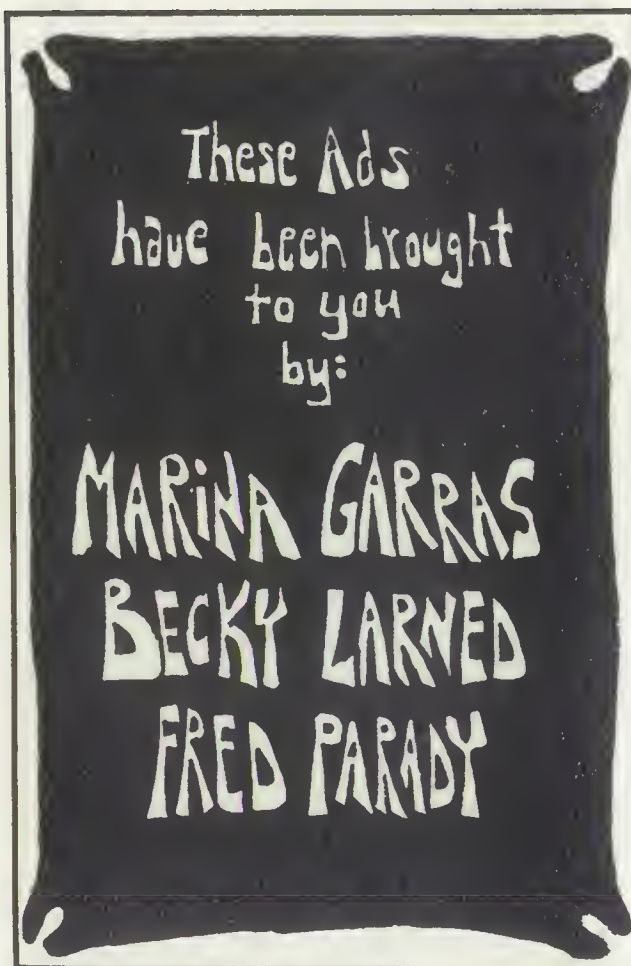 These Ads
have been brought
to you
by:
MARINA GARRAS
BECKY LARNED
FRED PARADY